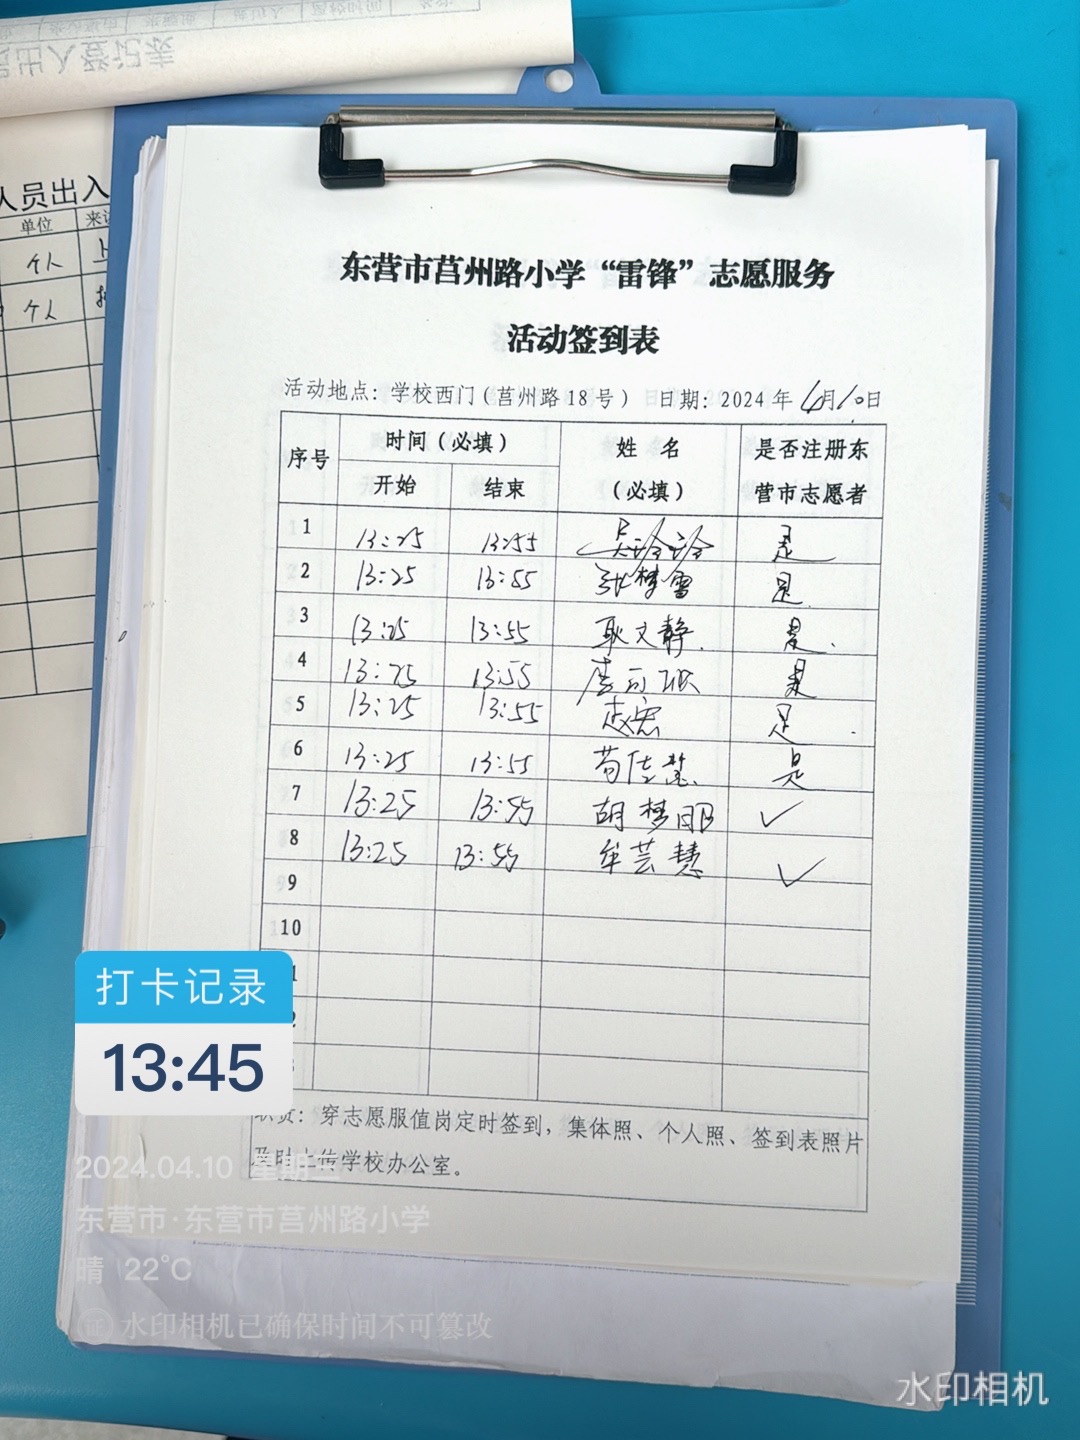 出入登记表
人员出入
单位
个人
个人
东营市莒州路小学“雷锋”志愿服务
活动签到表
活动地点：学校西门（莒州路18号） 日期：2024年4月10日
序号 时间（必填） 姓名（必填） 是否注册东营市志愿者
开始 结束
1 13:25 13:55 是
2 13:25 13:55 张梦雪 是
3 13:25 13:55 耿文静 是
4 13:25 13:55 是
5 13:25 13:55 是
6 13:25 13:55 苟佳慧 是
7 13:25 13:55 胡梦 ✓
8 13:25 13:55 牟芸慧 ✓
9
10
职责：穿志愿服值岗定时签到，集体照、个人照、签到表照片
及时上传学校办公室。
打卡记录
13:45
2024.04.10 星期三
东营市·东营市莒州路小学
晴 22°C
证 水印相机已确保时间不可篡改
水印相机